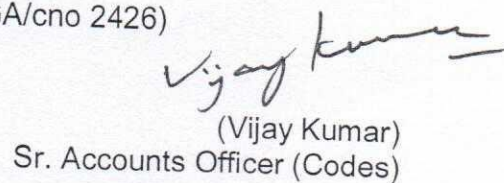 GA/cno 2426)
Vijay Kumar
(Vijay Kumar)
Sr. Accounts Officer (Codes)